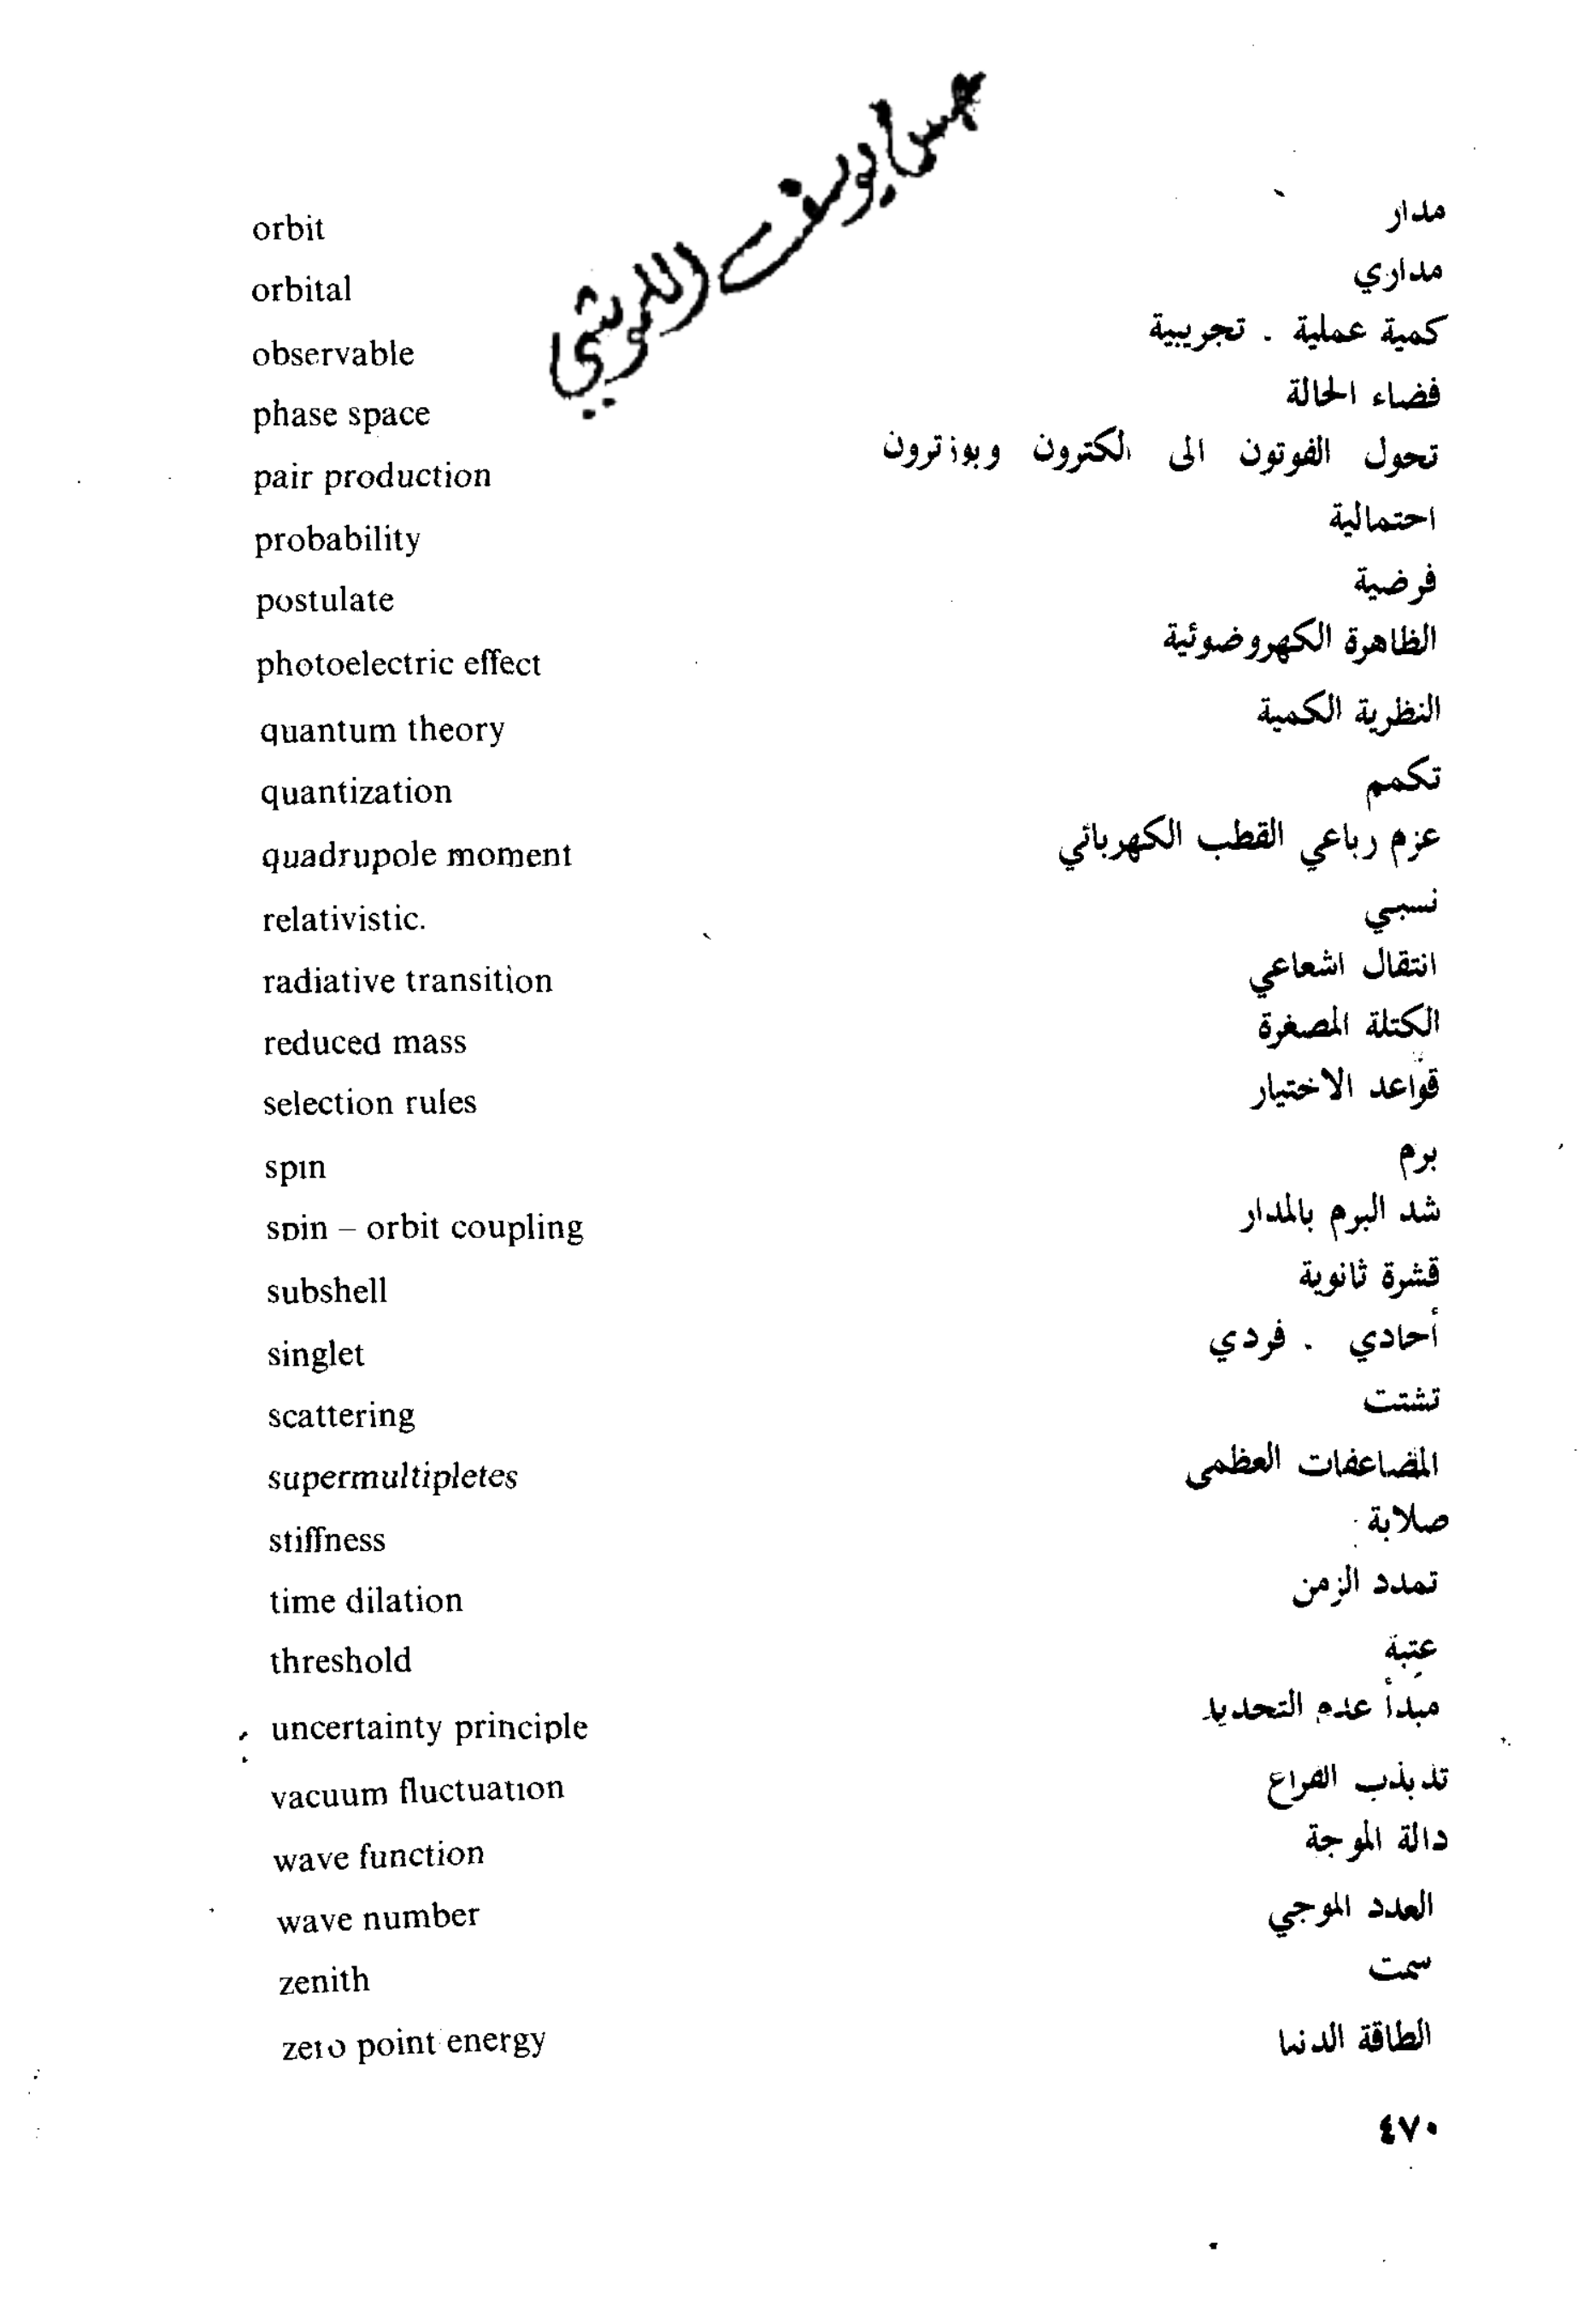 يوسف
orbit مدار
orbital مداري
observable كمية عملية . تجريبية
phase space فضاء الحالة
pair production تحول الفوتون الى الكترون وبوزترون
probability احتمالية
postulate فرضية
photoelectric effect الظاهرة الكهروضوئية
quantum theory النظرية الكمية
quantization تكمم
quadrupole moment عزم رباعي القطب الكهربائي
relativistic. نسبي
radiative transition انتقال اشعاعي
reduced mass الكتلة المصغرة
selection rules قواعد الاختيار
spin برم
spin – orbit coupling شد البرم بالمدار
subshell قشرة ثانوية
singlet أحادي . فردي
scattering تشتت
supermultipletes المضاعفات العظمى
stiffness صلابة
time dilation تمدد الزمن
threshold عتبة
uncertainty principle مبدأ عدم التحديد
vacuum fluctuation تذبذب الفراغ
wave function دالة الموجة
wave number العدد الموجي
zenith سمت
zero point energy الطاقة الدنيا
٤٧٠